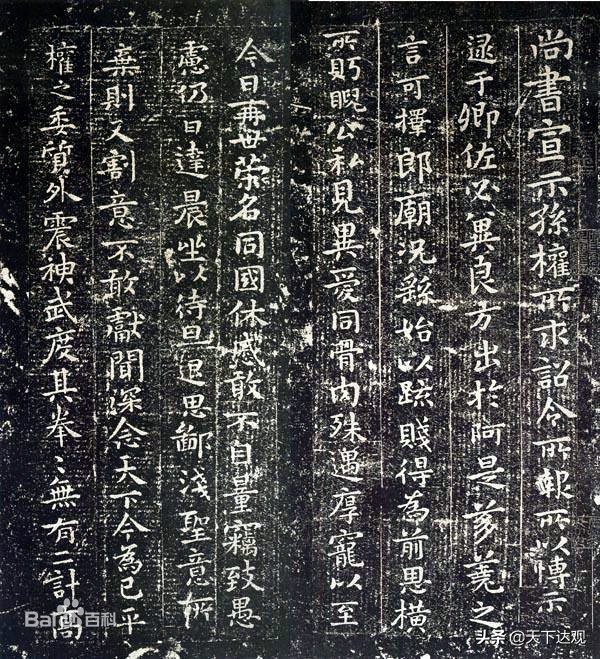 尚書宣示孫權所求詔令所報所以博示
逮于卿佐必冀良方出於阿是芻蕘之
言可擇郎廟況繇始以疏賤得為前恩橫
所眄睨公私見異愛同骨肉殊遇厚寵以至
今日再世榮名同國休慼敢不自量竊致愚
慮仍日達晨坐以待旦退思鄙淺聖意所
棄則又割意不敢獻聞深念天下今為已平
權之委質外震神武度其拳〻無有二計高
Bai百科
头条@天下达观